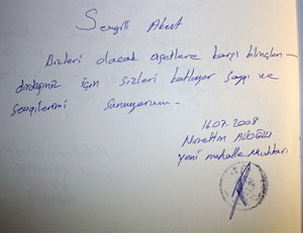 Sevgili Akut
Bizleri olacak afetlere karşı bilinçlen-
dirdiğiniz için sizleri kutluyor saygı ve
sevgilerimi sunuyorum-
16.07.2008
Nurettin
Yeni mahalle Muhtarı